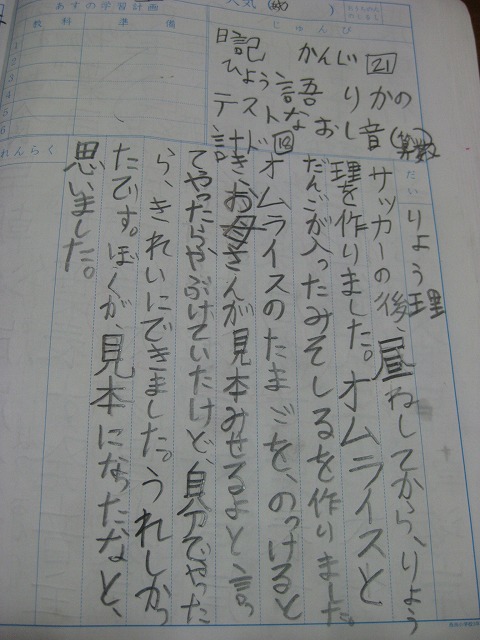 あすの学習計画
教科
準備
1
2
3
4
5
じゅんび
日記　かんじ21
ひょう語　りかの
テストなおし音(算数)
計ド18
れんらく
だい
りょう理
サッカーの後、昼ねしてから、りょう
理を作りました。オムライスと
だんごが入ったみそしるを作りました。
オムライスのたまごを、のっけると
きお母さんが見本みせるよと言っ
てやったらやぶけていたけど、自分でやった
ら、きれいにできました。うれしかっ
たです。ぼくが、見本になったなと、
思いました。